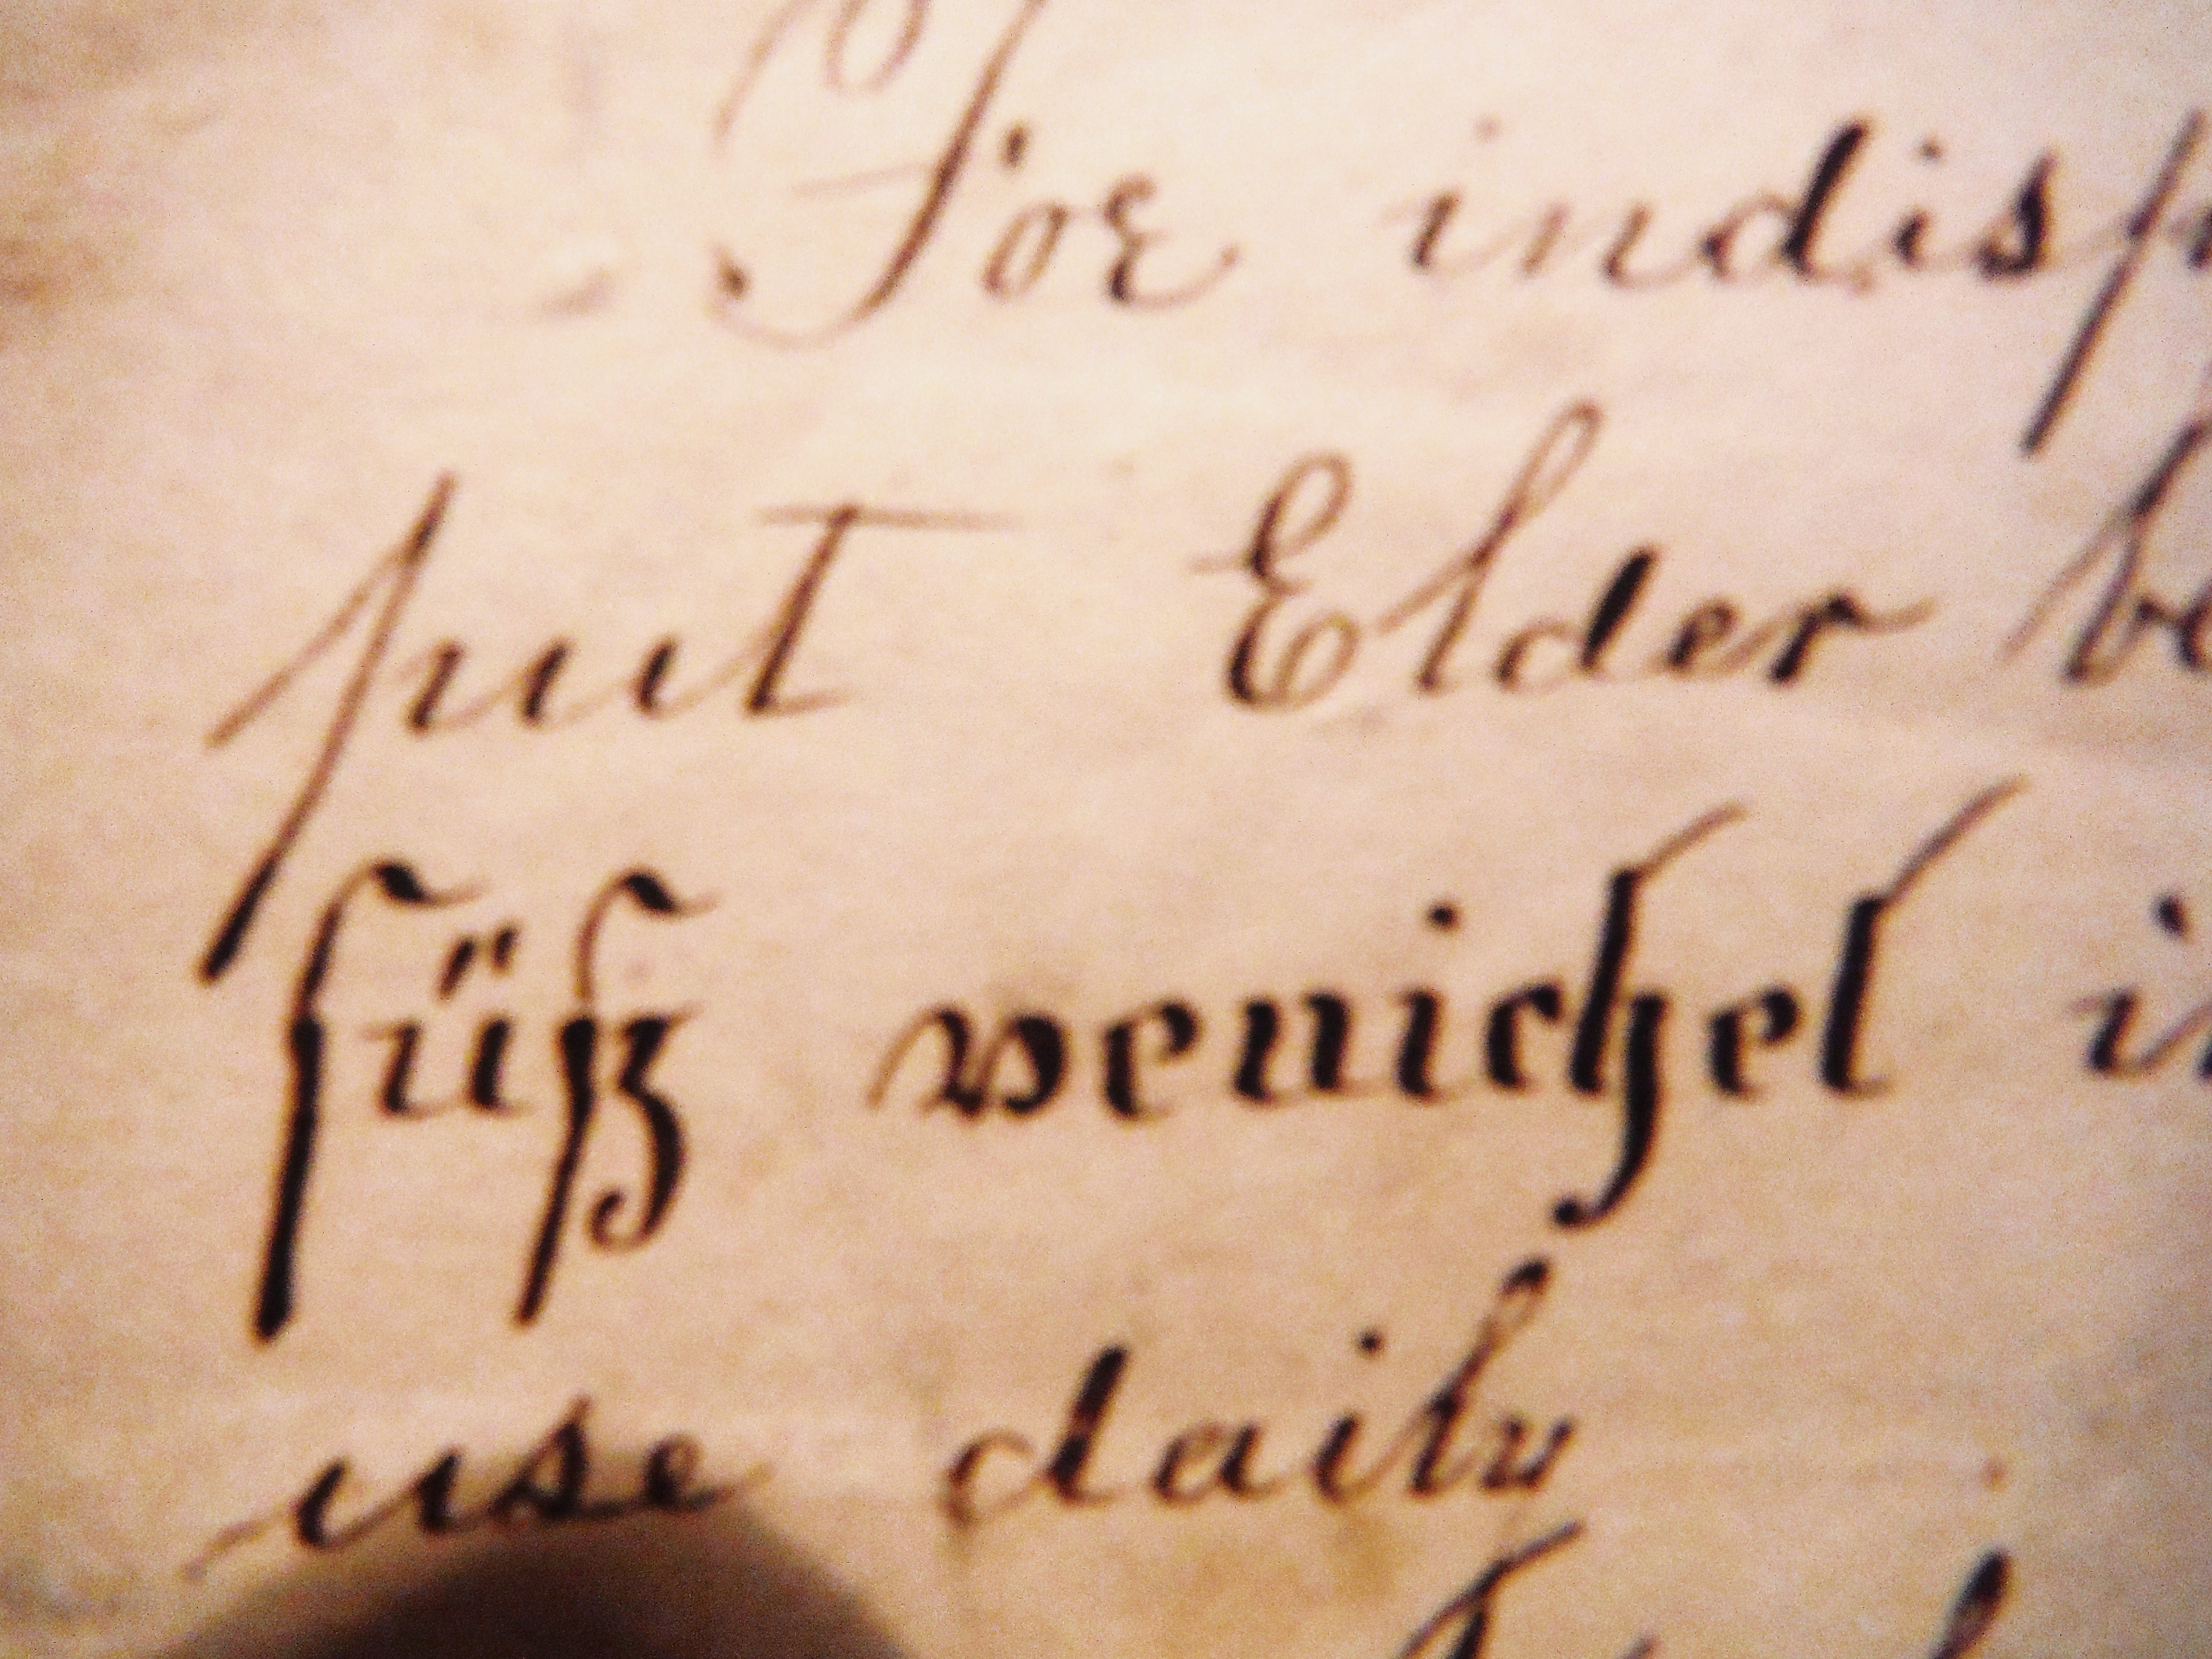 For indisp
put Elder be
süß venichel in
use daily